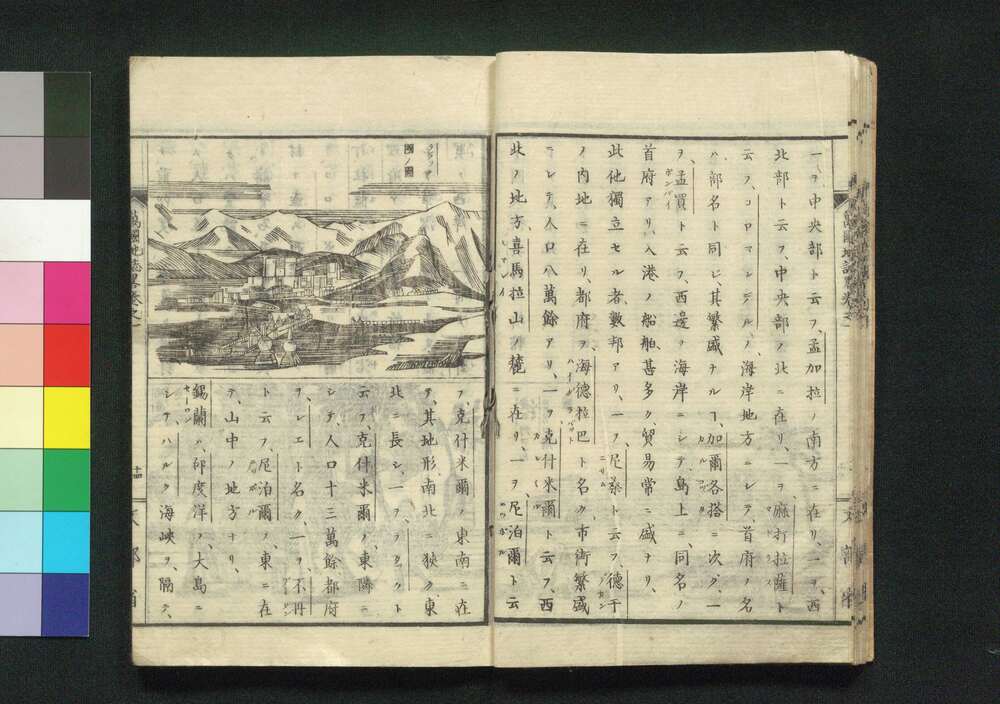 一ヲ中央部ト云フ、孟加拉ノ南方ニ在リ、一ヲ、西
北部ト云フ、中央部ノ北ニ在リ、一ヲ麻打拉薩ト
云フ、コロマンデルノ海岸地方ニシテ首府ノ名
ハ、部名ト同ジ、其繁盛ナルヿ、加爾各搭ニ次グ、一
ヲ、孟買ト云フ、西邊ノ海岸ニシテ、島上ニ同名ノ
首府アリ、入港ノ船舶、甚多ク、貿易常ニ盛ナリ、
此他獨立セル者數邦アリ、一ヲ、尼桑ト云フ、德干
ノ内地ニ在リ、都府ヲ海德拉巴ト名ク、市街繁盛
ニシテ、人口八萬餘アリ、一ヲ克什米爾ト云フ、西
北ノ地方、喜馬拉山ノ麓ニ在リ、一ヲ尼泊爾ト云
國ノ圖
フ、克什米爾ノ東南ニ在
テ、其地形南北ニ狹ク、東
北ニ長シ、一ヲラダックト
云フ、克什米爾ノ東隣ニ
シテ、人口十三萬餘都府
ヲレエト名ク、一ヲ、不丹
ト云フ、尼泊爾ノ東ニ在
テ、山中ノ地方ナリ、
錫蘭ハ、印度洋ノ大島ニ
シテ、ハルク海峽ヲ、隔テ、